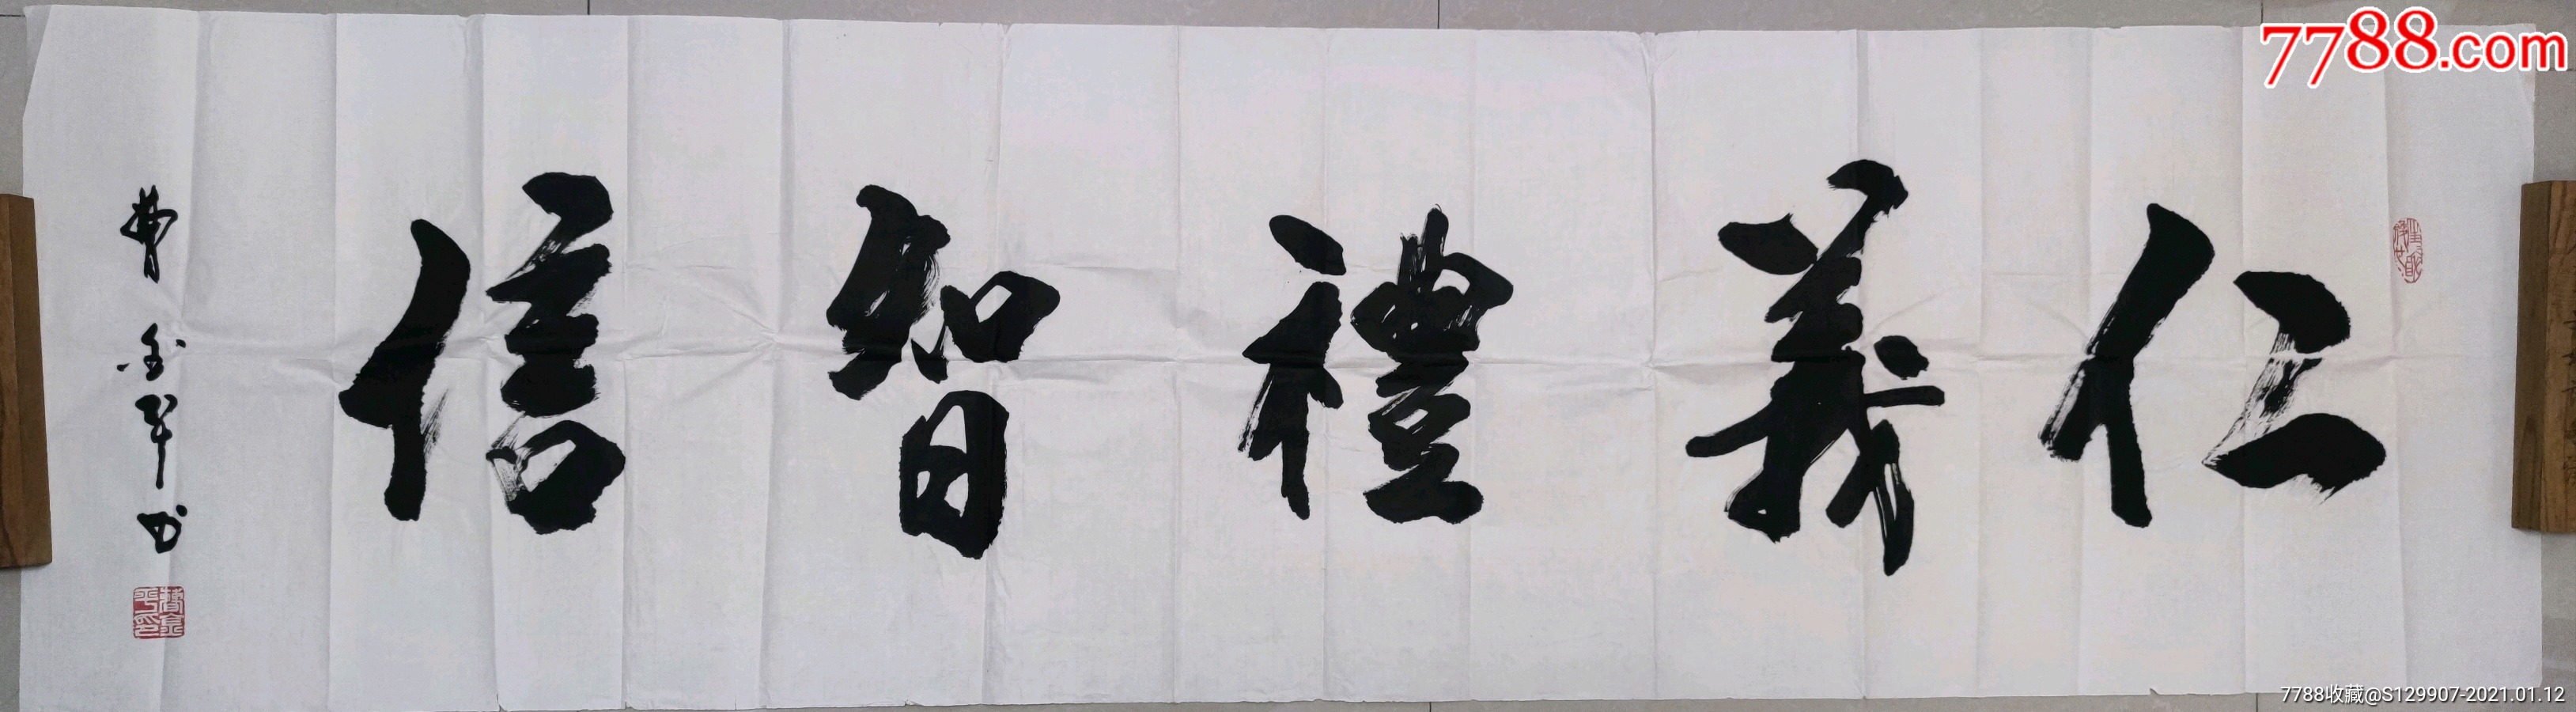 7788.com
仁義禮智信
費金平书
7788收藏@S129907-2021.01.12